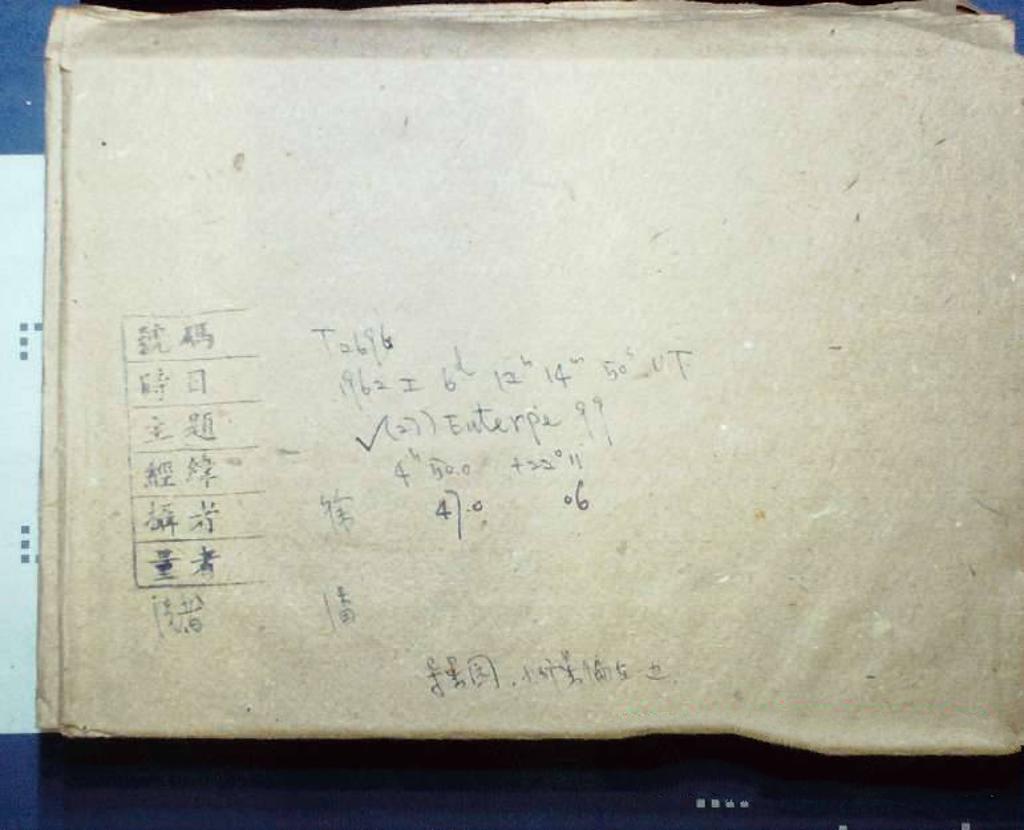 號碼 T2696
時日 1962 I 6d 12h 14m 50s UT
主題 ✓(27) Euterpe 99
經緯 4h 50.0 +22° 11
攝者 徐 47.0 06
量者
潘
星圈,小行星偏左